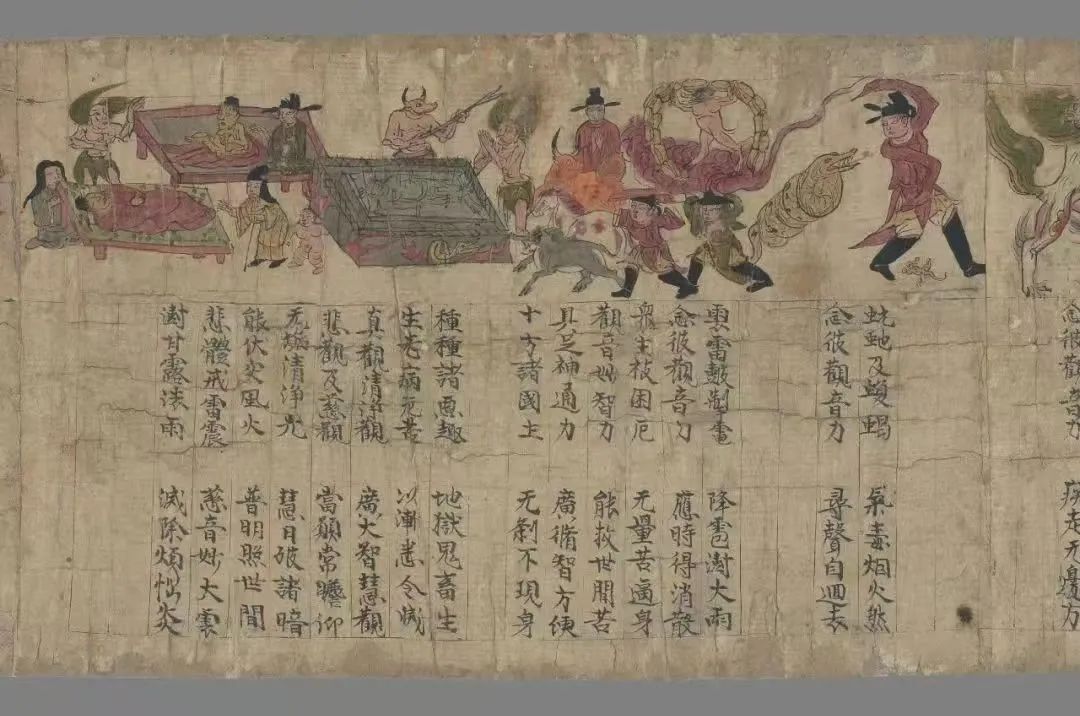 念彼觀音力 疾走无邊方
蚖虵及蝮蝎 氣毒烟火然
念彼觀音力 尋聲自迴去
雲雷皷掣電 降雹澍大雨
念彼觀音力 應時得消散
衆生被困厄 无量苦逼身
觀音妙智力 能救世間苦
具足神通力 廣脩智方便
十方諸國土 无剎不現身
種種諸惡趣 地獄鬼畜生
生老病死苦 以漸悉令滅
真觀清淨觀 廣大智慧觀
悲觀及慈觀 當願常瞻仰
无垢清淨光 慧日破諸暗
能伏灾風火 普明照世間
悲體戒雷震 慈音妙大雲
澍甘露法雨 滅除煩惱炎